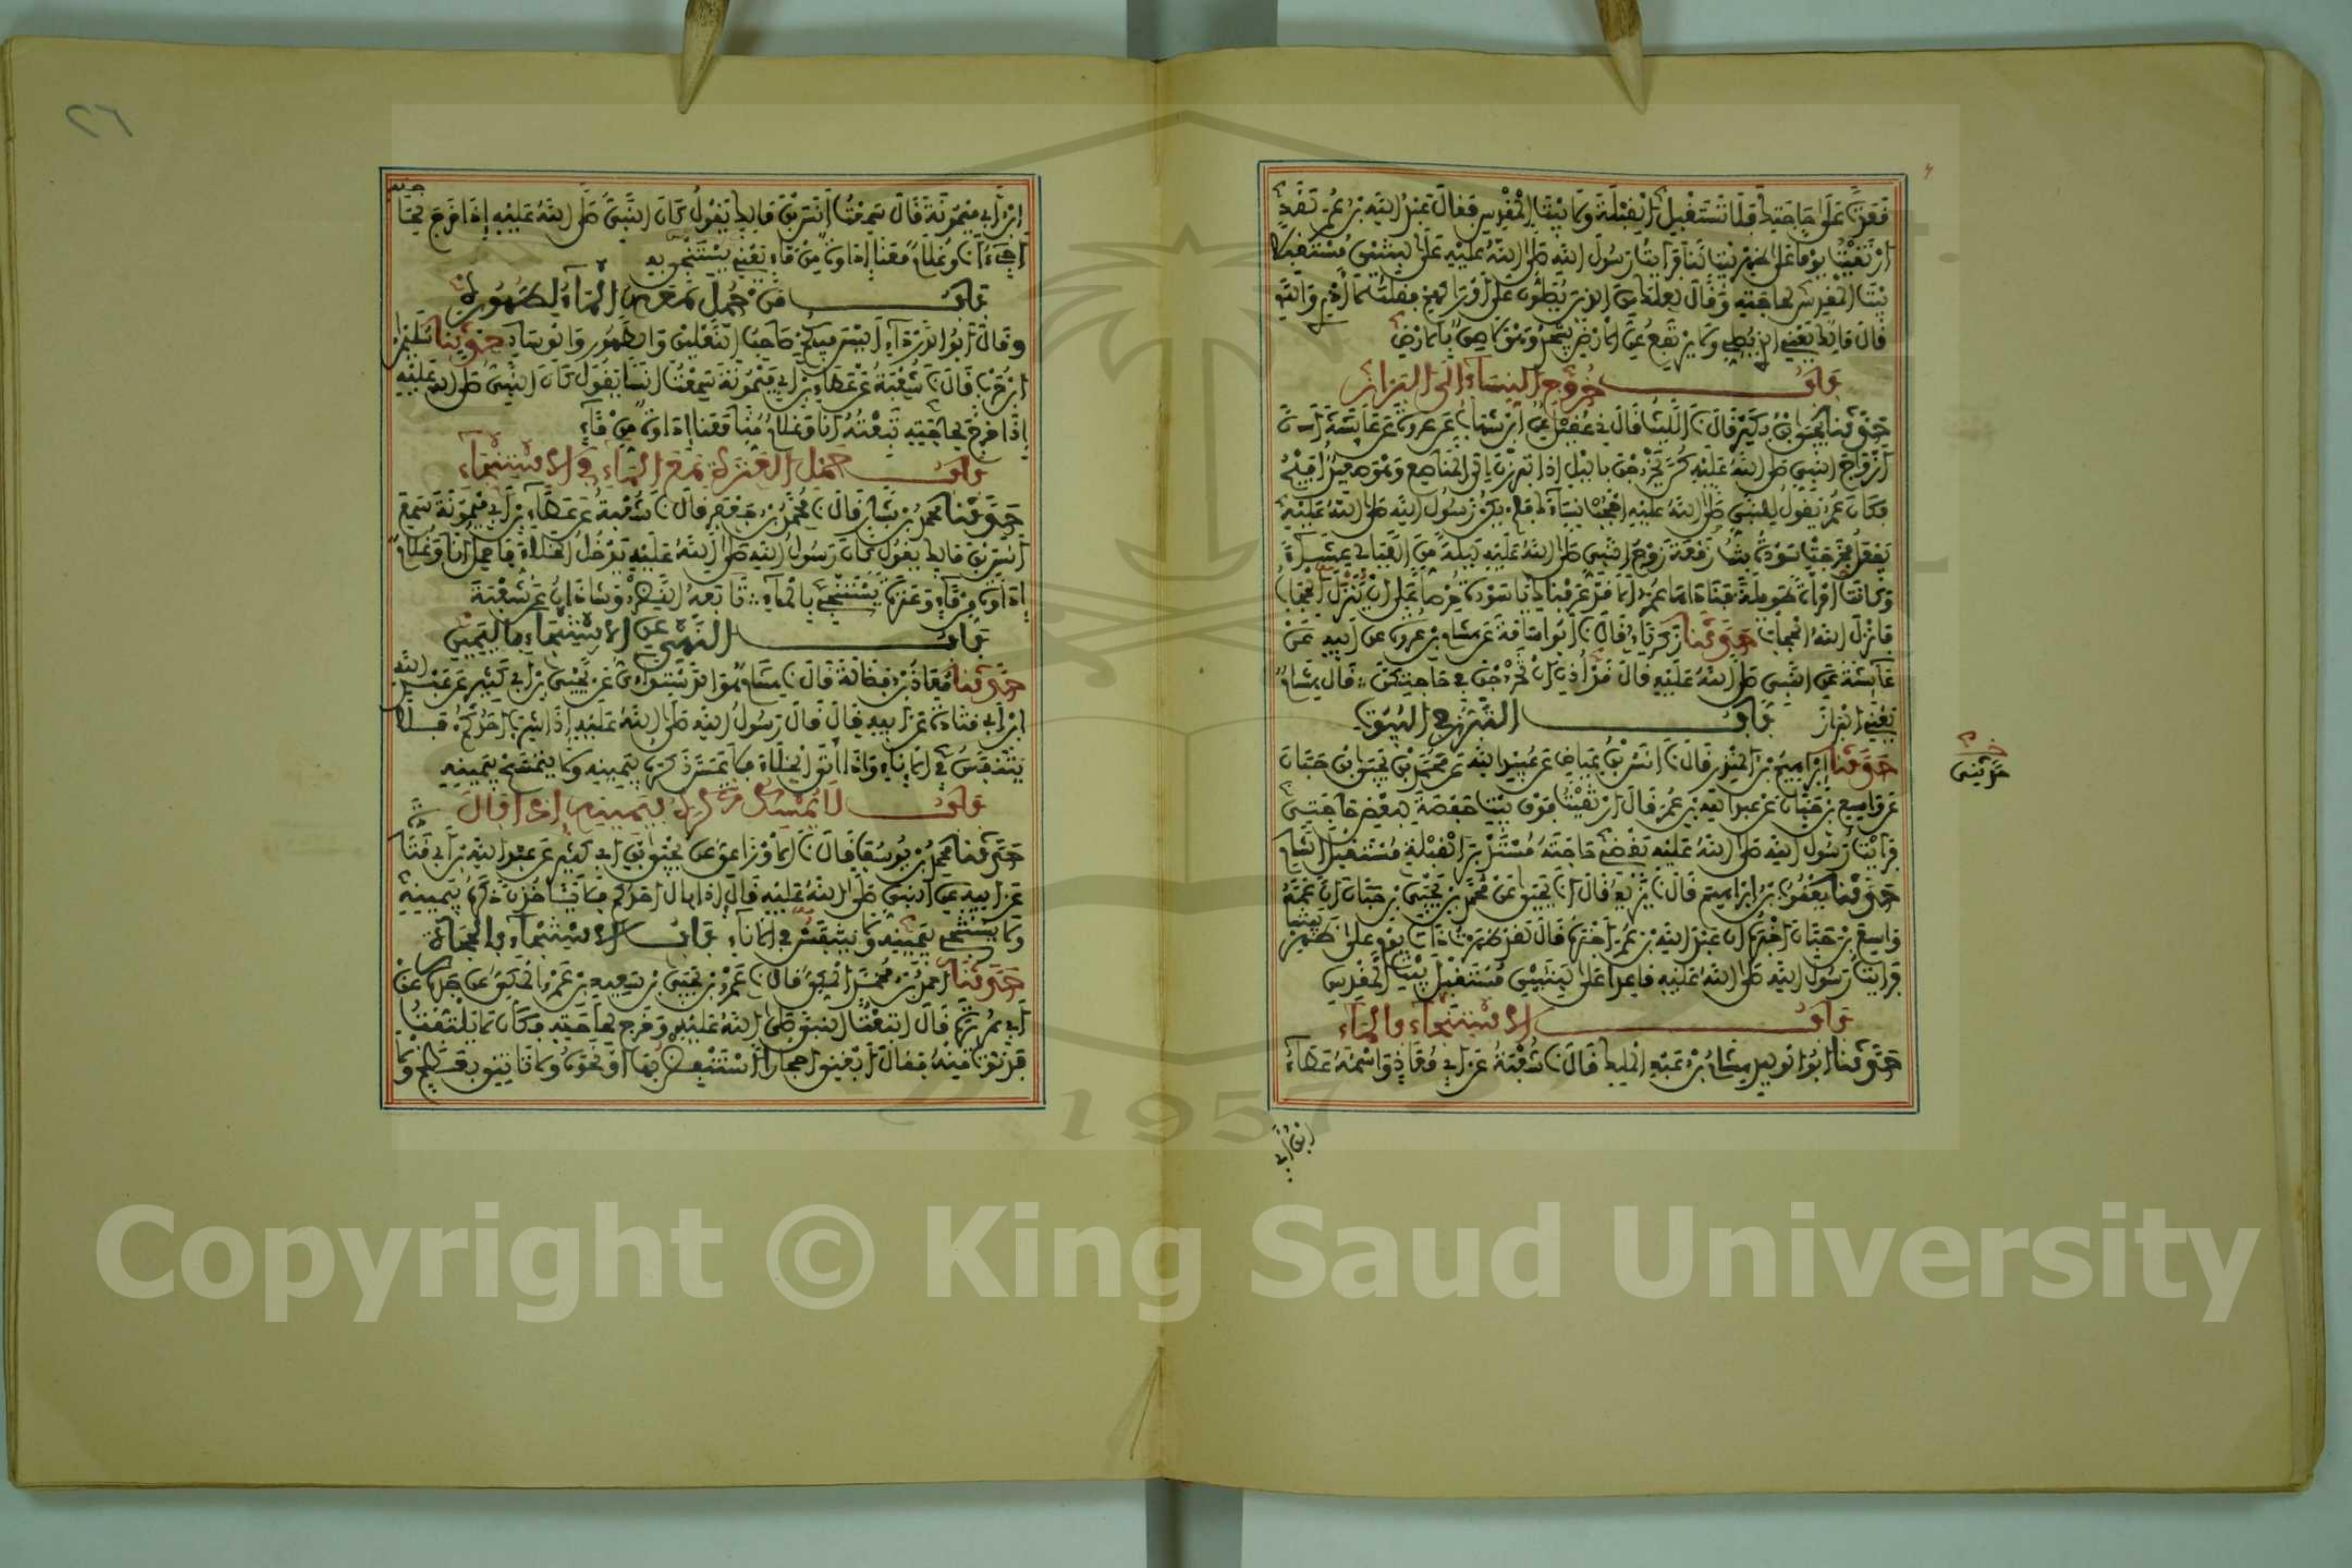 قعدت على حاجتك فلا تستقبل القبلة ولا بيت المقدس فقال عبد الله بن عمر لقد
ارتقيت يوما على ظهر بيت لنا فرأيت رسول الله صلى الله عليه على لبنتين مستقبلا
بيت المقدس لحاجته وقال لعلك من الذين يصلون على أوراكهم فقلت لا أدري والله
قال مالك يعني الذي يصلي ولا يرتفع عن الأرض يسجد وهو لاصق بالأرض
باب خروج النساء إلى البراز
حدثنا يحيى بن بكير قال نا الليث قال ني عقيل عن ابن شهاب عن عروة عن عائشة أن
أزواج النبي صلى الله عليه كن يخرجن بالليل إذا تبرزن إلى المناصع وهو صعيد أفيح
فكان عمر يقول للنبي صلى الله عليه احجب نساءك فلم يكن رسول الله صلى الله عليه
يفعل فخرجت سودة بنت زمعة زوج النبي صلى الله عليه ليلة من الليالي عشاء
وكانت امرأة طويلة فناداها عمر ألا قد عرفناك يا سودة حرصا على أن ينزل الحجاب
فأنزل الله الحجاب حدثنا زكرياء قال نا أبو أسامة عن هشام بن عروة عن أبيه عن
عائشة عن النبي صلى الله عليه قال قد أذن أن تخرجن في حاجتكن قال هشام
يعني البراز باب التبرز في البيوت
حدثنا إبراهيم بن المنذر قال نا أنس بن عياض عن عبيد الله عن محمد بن يحيى بن حبان
عن واسع بن حبان عن عبد الله بن عمر قال ارتقيت فوق بيت حفصة لبعض حاجتي
فرأيت رسول الله صلى الله عليه يقضي حاجته مستدبر القبلة مستقبل الشام
حدثنا يعقوب بن إبراهيم قال نا يزيد قال أنا يحيى عن محمد بن يحيى بن حبان أن عمه
واسع بن حبان أخبره أن عبد الله بن عمر أخبره قال لقد ظهرت ذات يوم على ظهر بيتنا
فرأيت رسول الله صلى الله عليه قاعدا على لبنتين مستقبل بيت المقدس
باب الاستنجاء بالماء
حدثنا أبو الوليد هشام بن عبد الملك قال نا شعبة عن أبي معاذ واسمه عطاء
ابن أبي
ابن أبي ميمونة قال سمعت أنس بن مالك يقول كان النبي صلى الله عليه إذا خرج لحاجته
أجيء أنا وغلام معنا إداوة من ماء يعني يستنجي به
باب من حمل معه الماء لطهوره
وقال أبو الدرداء أليس فيكم صاحب النعلين والطهور والوساد حدثنا سليمان
ابن حرب قال نا شعبة عن عطاء بن أبي ميمونة سمعت أنسا يقول كان النبي صلى الله عليه
إذا خرج لحاجته تبعته أنا وغلام منا معنا إداوة من ماء
باب حمل العنزة مع الماء في الاستنجاء
حدثنا محمد بن بشار قال نا محمد بن جعفر قال نا شعبة عن عطاء بن أبي ميمونة سمع
أنس بن مالك يقول كان رسول الله صلى الله عليه يدخل الخلاء فأحمل أنا وغلام
إداوة من ماء وعنزة يستنجي بالماء تابعه النضر وشاذان عن شعبة
باب النهي عن الاستنجاء باليمين
حدثنا معاذ بن فضالة قال نا هشام هو الدستوائي عن يحيى بن أبي كثير عن عبد الله
ابن أبي قتادة عن أبيه قال قال رسول الله صلى الله عليه إذا شرب أحدكم فلا
يتنفس في الإناء وإذا أتى الخلاء فلا يمس ذكره بيمينه ولا يتمسح بيمينه
باب لا يمسك ذكره بيمينه إذا بال
حدثنا محمد بن يوسف قال نا الأوزاعي عن يحيى بن أبي كثير عن عبد الله بن أبي قتادة
عن أبيه عن النبي صلى الله عليه قال إذا بال أحدكم فلا يأخذن ذكره بيمينه
ولا يستنجي بيمينه ولا يتنفس في الإناء باب الاستنجاء بالحجارة
حدثنا أحمد بن محمد المكي قال نا عمرو بن يحيى بن سعيد بن عمرو المكي عن جده عن
أبي هريرة قال اتبعت النبي صلى الله عليه وخرج لحاجته فكان لا يلتفت
فدنوت منه فقال ابغني أحجارا أستنفض بها أو نحوه ولا تأتيني بعظم ولا
Copyright © King Saud University
1957